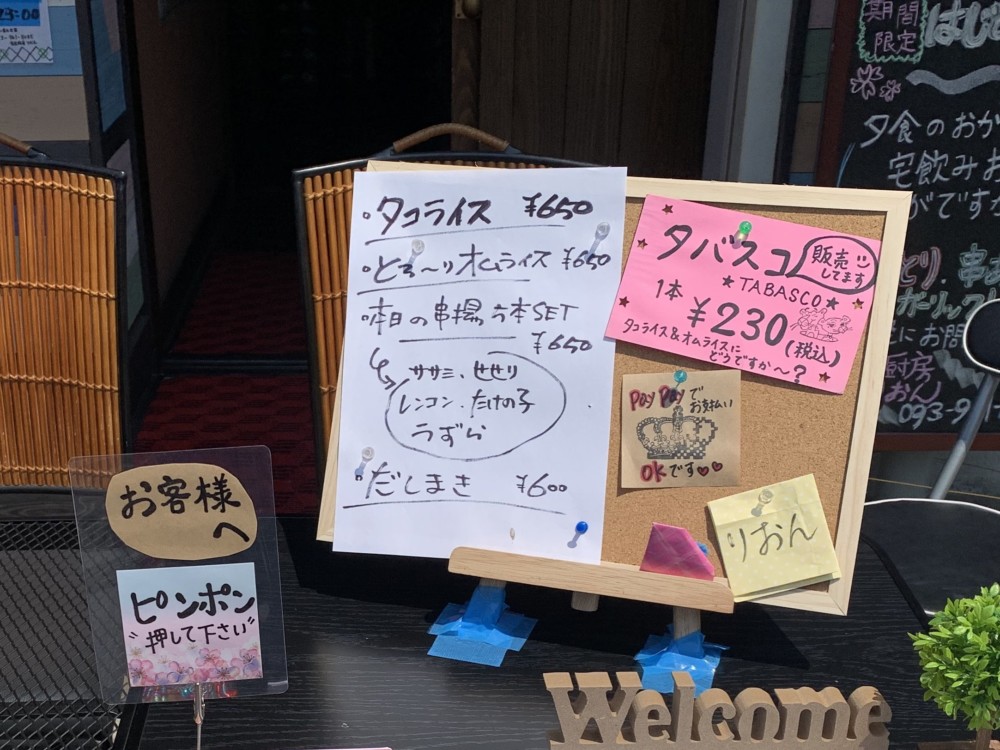 23:00
・タコライス ¥650
・とろ〜りオムライス ¥650
本日の串揚六本SET
¥650
ササミ、せせり
レンコン、たけの子
うずら
・だしまき ¥600
タバスコ
販売
してます
★TABASCO★
1本 ¥230(税込)
タコライス&オムライスに
どうですか〜?
PayPayで
お支払い
OKです
りおん
お客様
へ
ピンポン
"押して下さい"
Welcome
期間
限定
はじ
夕食のおか
宅飲みお
がですか
とり、串
ガーリック
にお問
厨房
おん
093-9